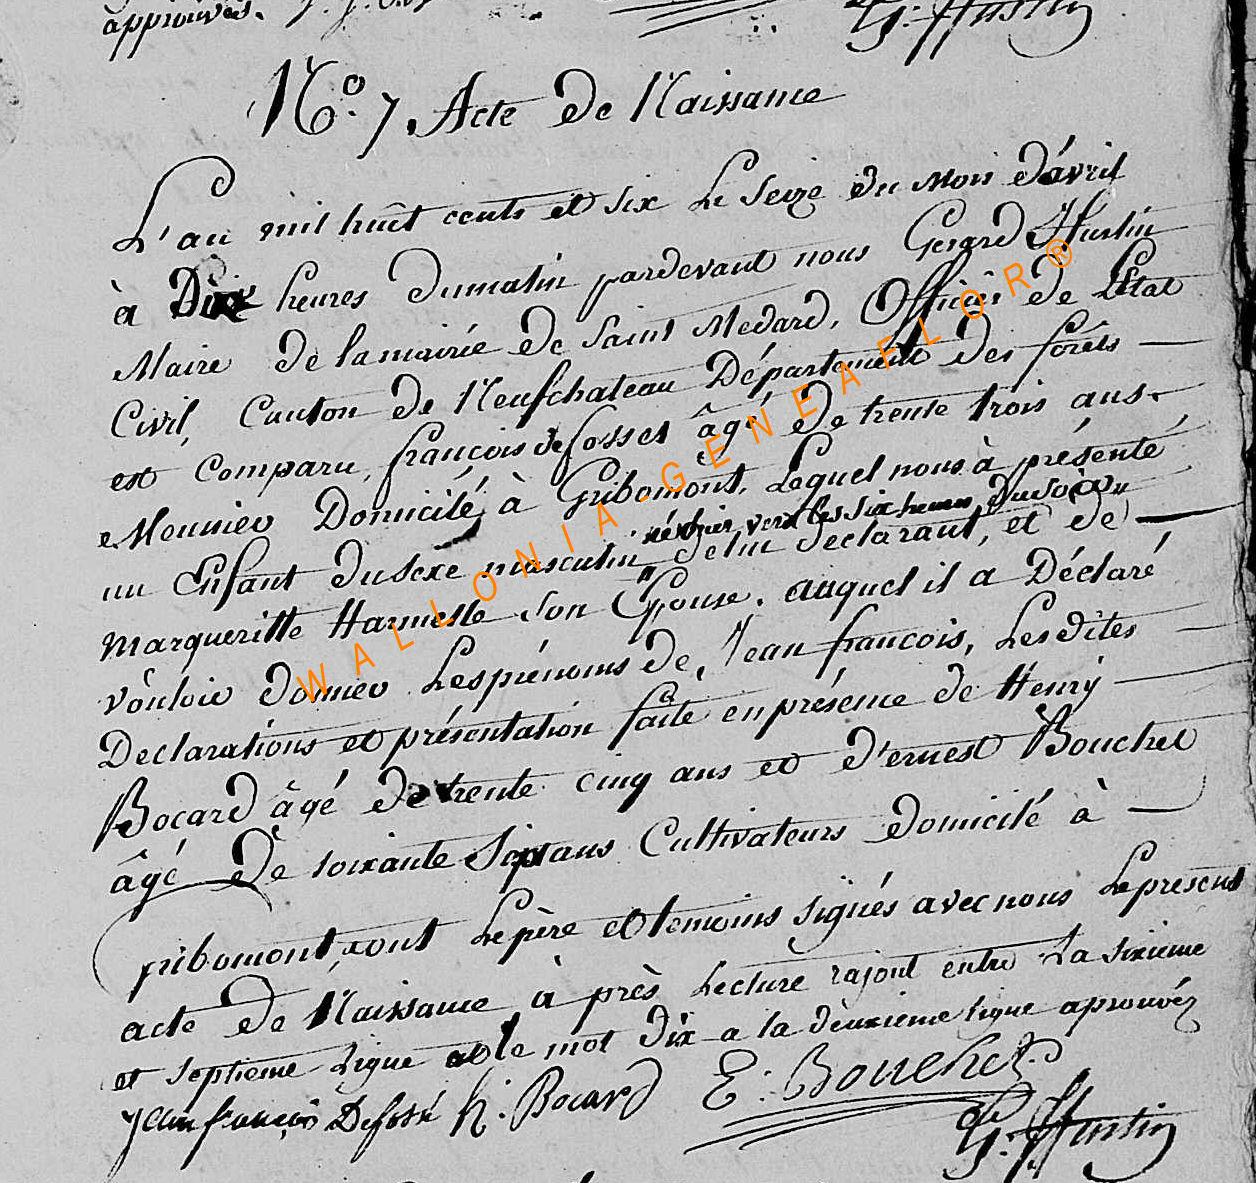 approuvés.
G. Hustin
N.º 7. Acte de Naissance
L'an mil huit cents et six Le Seize du Mois d'avril
à Dix heures dumatin pardevant nous Gerard Hustin
Maire de lamairie de Saint Medard, Officier de L'Etat
Civil, Canton de Neufchateau Département des forêts
est comparu, françois defosset âgé de trente trois ans.
Meunier Domicilé à Gribomont, Lequel nous à présenté
né hier vers les six heures Dusoir
un Enfant dusexe masculin delui declarant, et de
Margueritte Harmelle son Epouse. auquel il a Déclaré
voûloir donner Lesprénoms de, Jean françois, Lesdites
Declarations et présentation faite enprésence de Henry
Bocard âgé de trente cinq ans et d'ernest Bouchet
âgé De soixante Sept ans Cultivateurs domicilé à
gribomont, ont Lepère et temoins signés avec nous Lepresent
acte de Naissance à près Lecture rajout entre La sixieme
et septieme Ligne et le mot Dix a la deuxieme ligne aprouvéz
Jean françois Defossé h. Bocard E: Bouchet
G. Hustin
WALLONIA-GENEAFLOR®